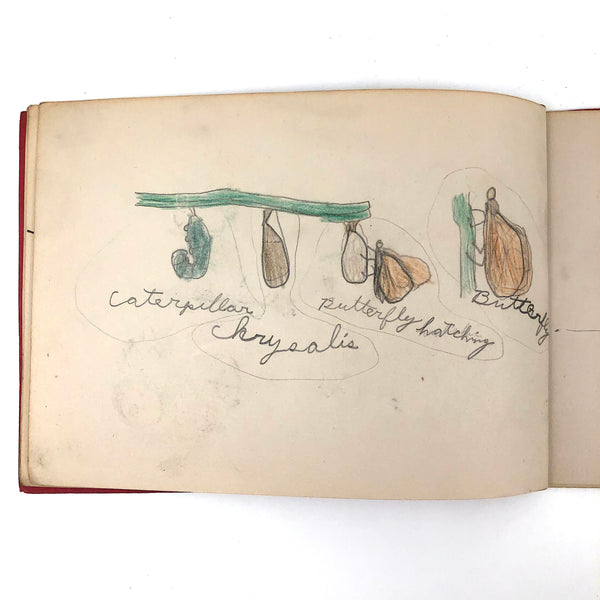 Caterpillar
Chrysalis
Butterfly hatching
Butterfly.